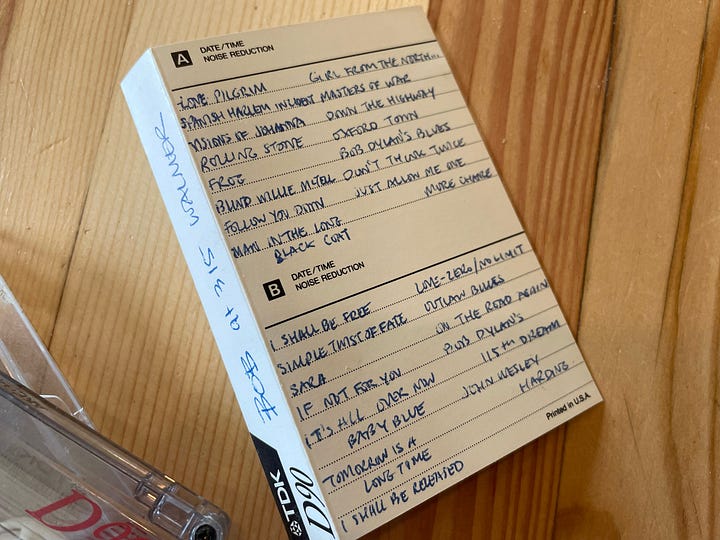 A DATE/TIME
NOISE REDUCTION
LOVE PILGRIM GIRL FROM THE NORTH...
SPANISH HARLEM INCIDENT MASTERS OF WAR
VISIONS OF JOHANNA DOWN THE HIGHWAY
ROLLING STONE OXFORD TOWN
FROG BOB DYLAN'S BLUES
BLIND WILLIE McTELL DON'T THINK TWICE
FOLLOW YOU DOWN JUST ALLOW ME ONE
MAN IN THE LONG MORE CHANCE
BLACK COAT
B DATE/TIME
NOISE REDUCTION
I SHALL BE FREE LOVE-ZERO/NO LIMIT
SIMPLE TWIST OF FATE OUTLAW BLUES
SARA ON THE ROAD AGAIN
IF NOT FOR YOU BOB DYLAN'S
IT'S ALL OVER NOW 115TH DREAM
BABY BLUE JOHN WESLEY
TOMORROW IS A HARDING
LONG TIME
I SHALL BE RELEASED
Printed in U.S.A.
BOB at 315
TDK D90
De